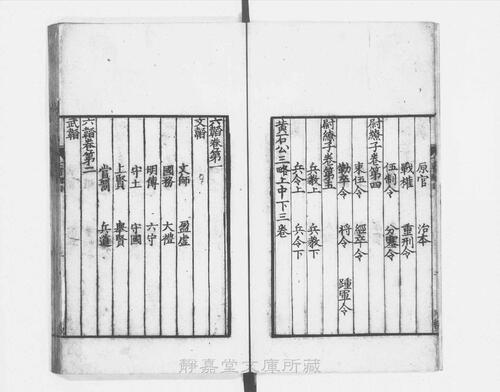 原官 治本
戰權 重刑令
伍制令 分塞令
尉繚子卷第四
束伍令 經卒令
勒卒令 將令 踵軍令
尉繚子卷第五
兵教上 兵教下
兵令上 兵令下
黃石公三略上中下三卷
六韜卷第一
文韜
文師 盈虛
國務 大禮
明傳 六守
守土 守國
上賢 舉賢
賞罰 兵道
六韜卷第二
武韜
靜嘉堂文庫所藏